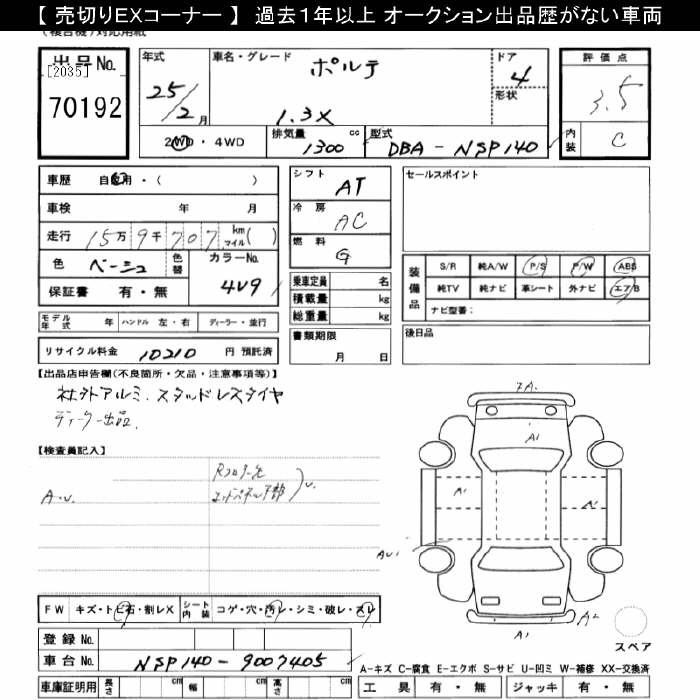 【 売切りEXコーナー 】 過去１年以上 オークション出品歴がない車両
出品 No.
[2035]
70192
年式
25/2 月
車名・グレード
ポルテ
1.3X
ドア
4
形状
2WD ・ 4WD
排気量 1300 cc
型式 DBA - NSP140
評価点
3.5
内装 C
車歴 自家用・( )
車検 年 月
走行 15万 9千 707 km マイル ( )
色 ベージュ 色替 カラーNo. 4V9
保証書 有・無
モデル年式 年 ハンドル 左・右 ディーラー・並行
リサイクル料金 10210 円 預託済
シフト AT
冷房 AC
燃料 G
乗車定員 名
積載量 kg
総重量 kg
書類期限
月 日
セールスポイント
装備品
S/R 純A/W P/S P/W ABS
純TV 純ナビ 革シート 外ナビ エアB
ナビ型番：
後日品
【出品店申告欄(不良箇所・欠品・注意事項等)】
社外アルミ. スタッドレスタイヤ
ディーラー出品.
【検査員記入】
A・U.
Rフロアー先
エンドパネル下部
U.
7A.
A1
A1
A1
AU1
A2
A1
スペア
FW キズ・トビ石・割レX シート内装 コゲ・穴・汚レ・シミ・破レ・スレ
登録 No.
車台 No. NSP140-9007405
車庫証明用 長さ cm 幅 cm 高さ cm
A-キズ C-腐食 E-エクボ S-サビ U-凹ミ W-補修 XX-交換済
工具 有・無 ジャッキ 有・無